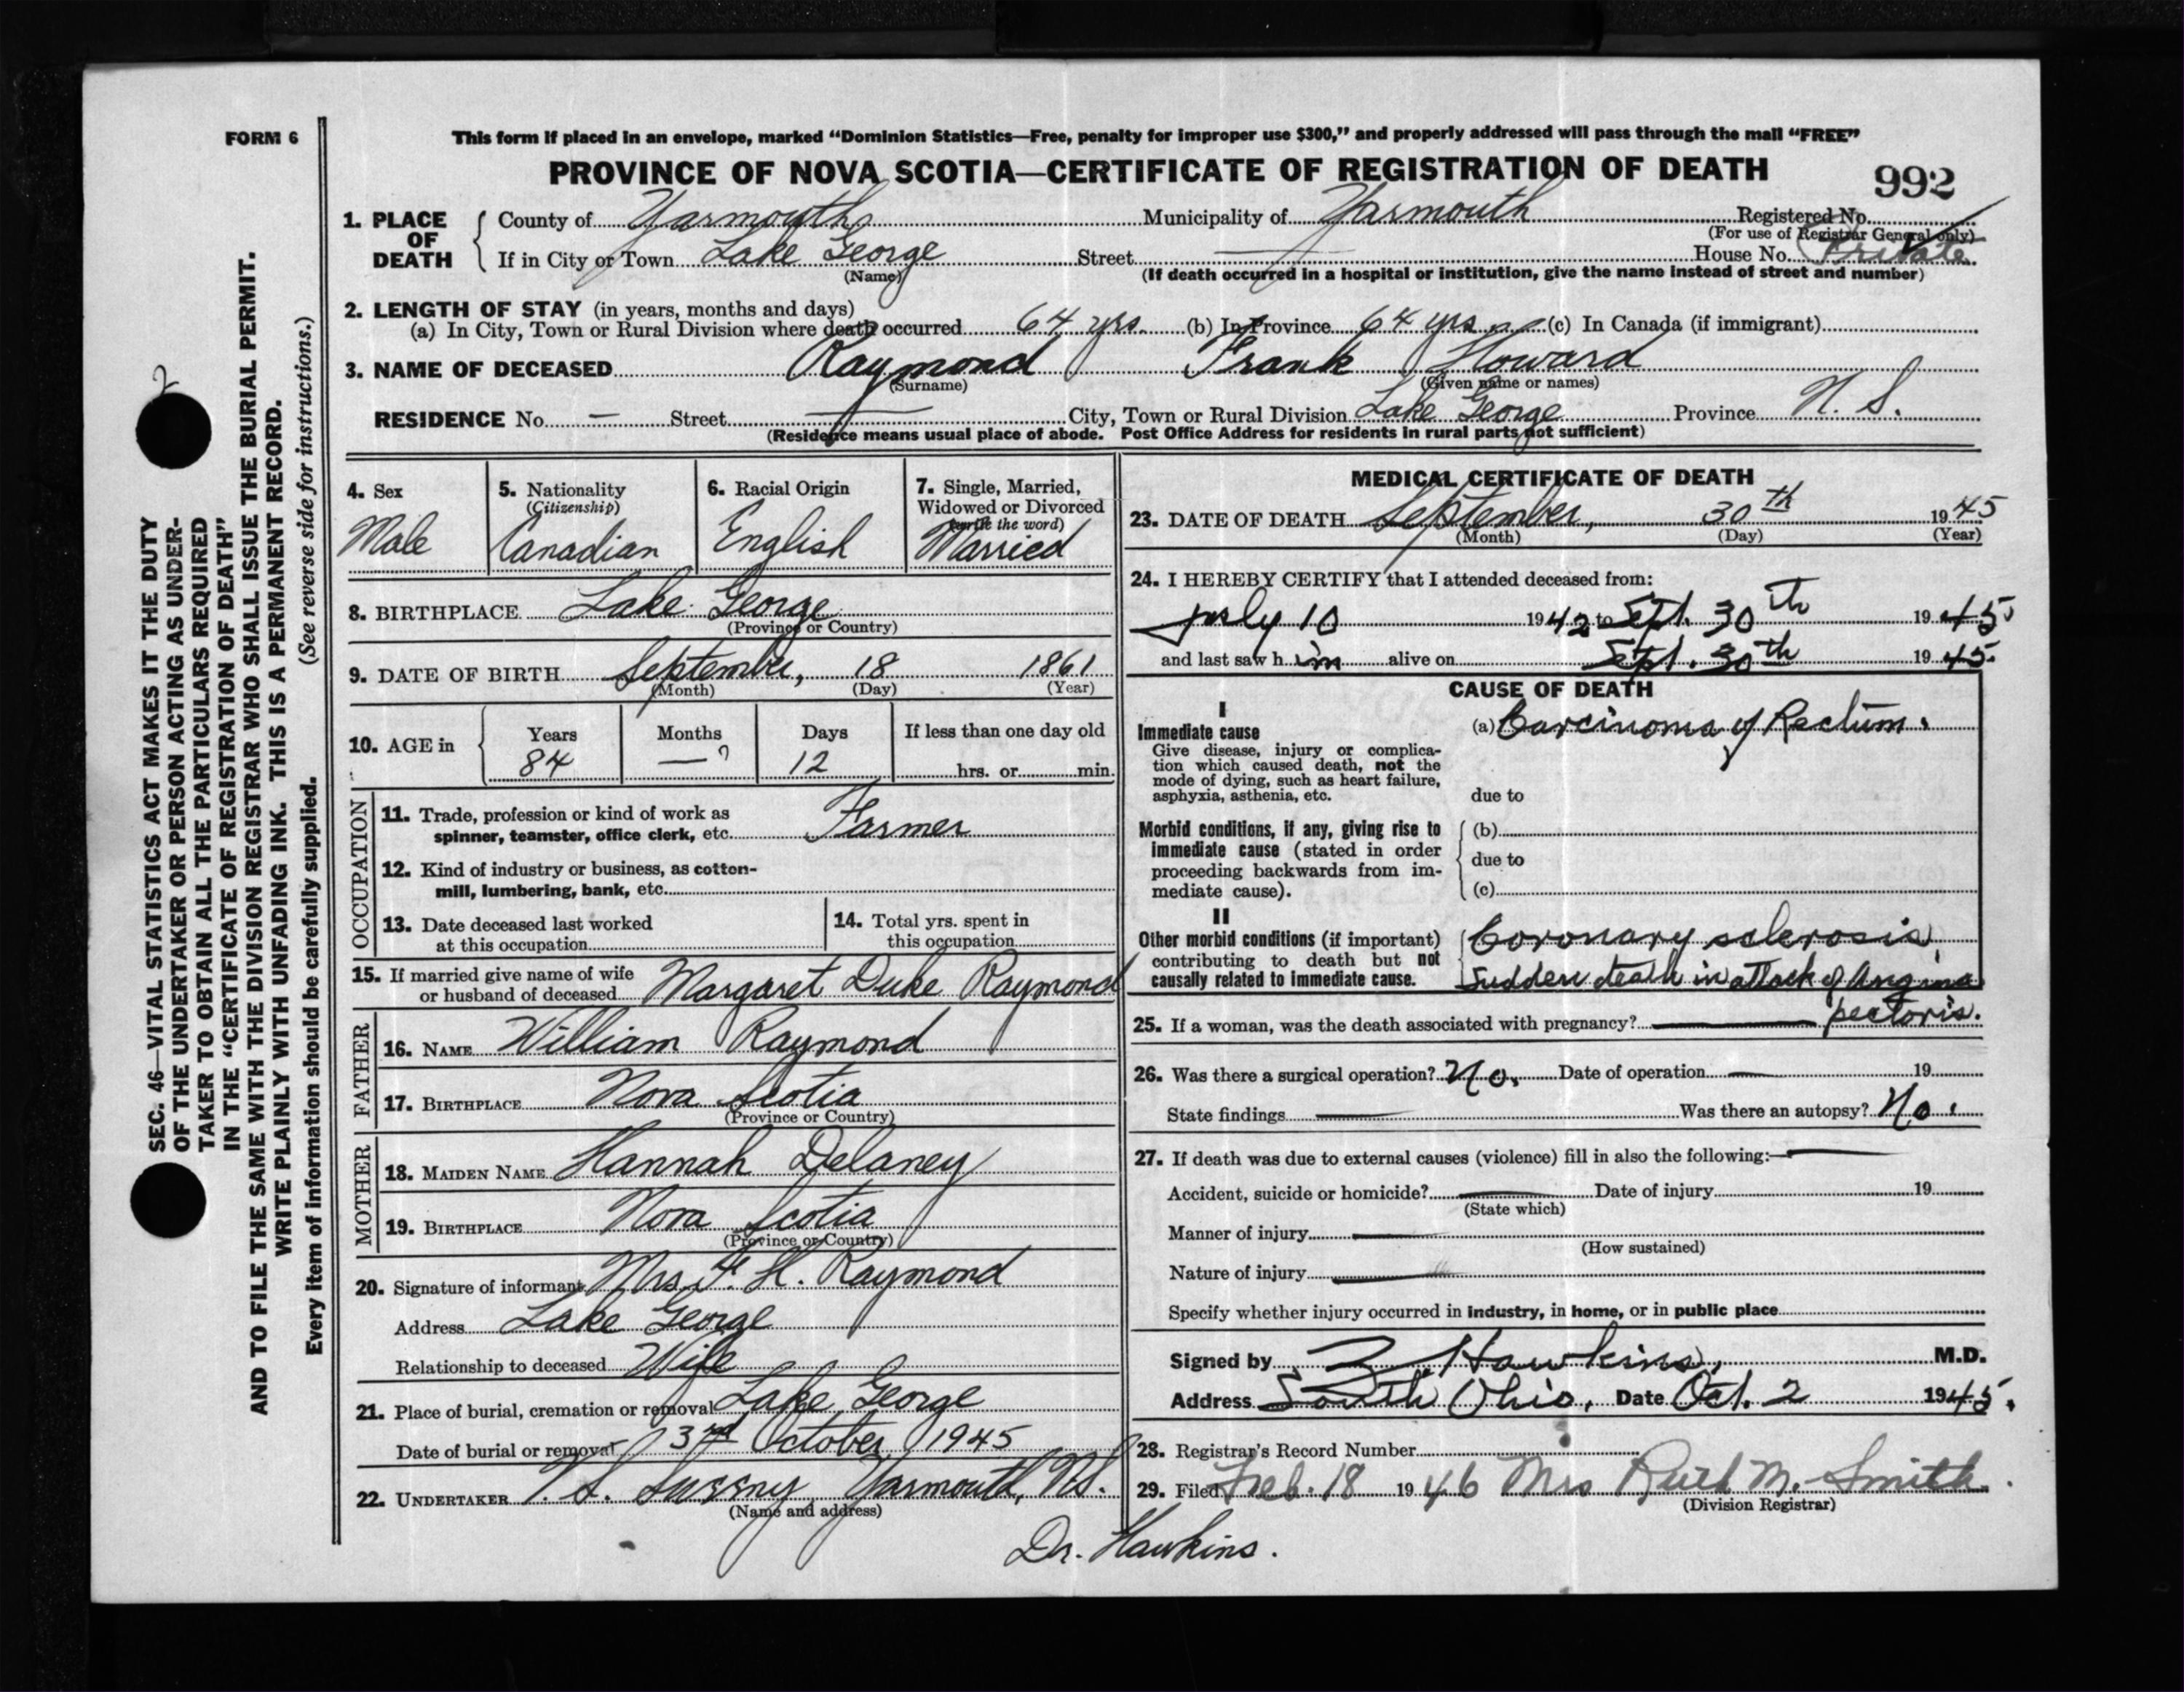 FORM 6
This form if placed in an envelope, marked "Dominion Statistics—Free, penalty for improper use $300," and properly addressed will pass through the mail "FREE"
PROVINCE OF NOVA SCOTIA—CERTIFICATE OF REGISTRATION OF DEATH
992
1. PLACE OF DEATH
County of Yarmouth Municipality of Yarmouth Registered No.
(For use of Registrar General only)
If in City or Town Lake George Street — House No. Private
(Name) (If death occurred in a hospital or institution, give the name instead of street and number)
2. LENGTH OF STAY (in years, months and days)
(a) In City, Town or Rural Division where death occurred 64 yrs. (b) In Province 64 yrs. (c) In Canada (if immigrant)
3. NAME OF DECEASED Raymond Frank Howard
(Surname) (Given name or names)
RESIDENCE No. — Street — City, Town or Rural Division Lake George Province N. S.
(Residence means usual place of abode. Post Office Address for residents in rural parts not sufficient)
4. Sex
Male
5. Nationality
(Citizenship)
Canadian
6. Racial Origin
English
7. Single, Married,
Widowed or Divorced
(write the word)
Married
8. BIRTHPLACE Lake George
(Province or Country)
9. DATE OF BIRTH September, 18 1861
(Month) (Day) (Year)
10. AGE in
Years Months Days If less than one day old
84 — ? 12 hrs. or min.
OCCUPATION
11. Trade, profession or kind of work as
spinner, teamster, office clerk, etc. Farmer
12. Kind of industry or business, as cotton-
mill, lumbering, bank, etc.
13. Date deceased last worked
at this occupation
14. Total yrs. spent in
this occupation
15. If married give name of wife
or husband of deceased Margaret Duke Raymond
FATHER
16. NAME William Raymond
17. BIRTHPLACE Nova Scotia
(Province or Country)
MOTHER
18. MAIDEN NAME Hannah Delaney
19. BIRTHPLACE Nova Scotia
(Province or Country)
20. Signature of informant Mrs. F. H. Raymond
Address Lake George
Relationship to deceased Wife
21. Place of burial, cremation or removal Lake George
Date of burial or removal 3rd October 1945
22. UNDERTAKER V. S. Sweeny, Yarmouth, N.S.
(Name and address)
MEDICAL CERTIFICATE OF DEATH
23. DATE OF DEATH September, 30th 1945
(Month) (Day) (Year)
24. I HEREBY CERTIFY that I attended deceased from:
July 10 1942 to Sept. 30th 1945
and last saw him alive on Sept. 30th 1945.
CAUSE OF DEATH
I
Immediate cause
Give disease, injury or complica-
tion which caused death, not the
mode of dying, such as heart failure,
asphyxia, asthenia, etc.
(a) Carcinoma of Rectum.
due to
Morbid conditions, if any, giving rise to
immediate cause (stated in order
proceeding backwards from im-
mediate cause).
(b)
due to
(c)
II
Other morbid conditions (if important)
contributing to death but not
causally related to immediate cause.
Coronary sclerosis,
Sudden death in attack of Angina
pectoris.
25. If a woman, was the death associated with pregnancy? —
26. Was there a surgical operation? No. Date of operation — 19
State findings — Was there an autopsy? No.
27. If death was due to external causes (violence) fill in also the following:— —
Accident, suicide or homicide? — Date of injury 19
(State which)
Manner of injury —
(How sustained)
Nature of injury —
Specify whether injury occurred in industry, in home, or in public place
Signed by Z. Hawkins, M.D.
Address South Ohio. Date Oct. 2 1945.
28. Registrar's Record Number
29. Filed Feb. 18 1946 Mrs Ruth M. Smith
(Division Registrar)
Dr. Hawkins.
2
SEC. 46—VITAL STATISTICS ACT MAKES IT THE DUTY
OF THE UNDERTAKER OR PERSON ACTING AS UNDER-
TAKER TO OBTAIN ALL THE PARTICULARS REQUIRED
IN THE "CERTIFICATE OF REGISTRATION OF DEATH"
AND TO FILE THE SAME WITH THE DIVISION REGISTRAR WHO SHALL ISSUE THE BURIAL PERMIT.
WRITE PLAINLY WITH UNFADING INK. THIS IS A PERMANENT RECORD.
Every item of information should be carefully supplied. (See reverse side for instructions.)